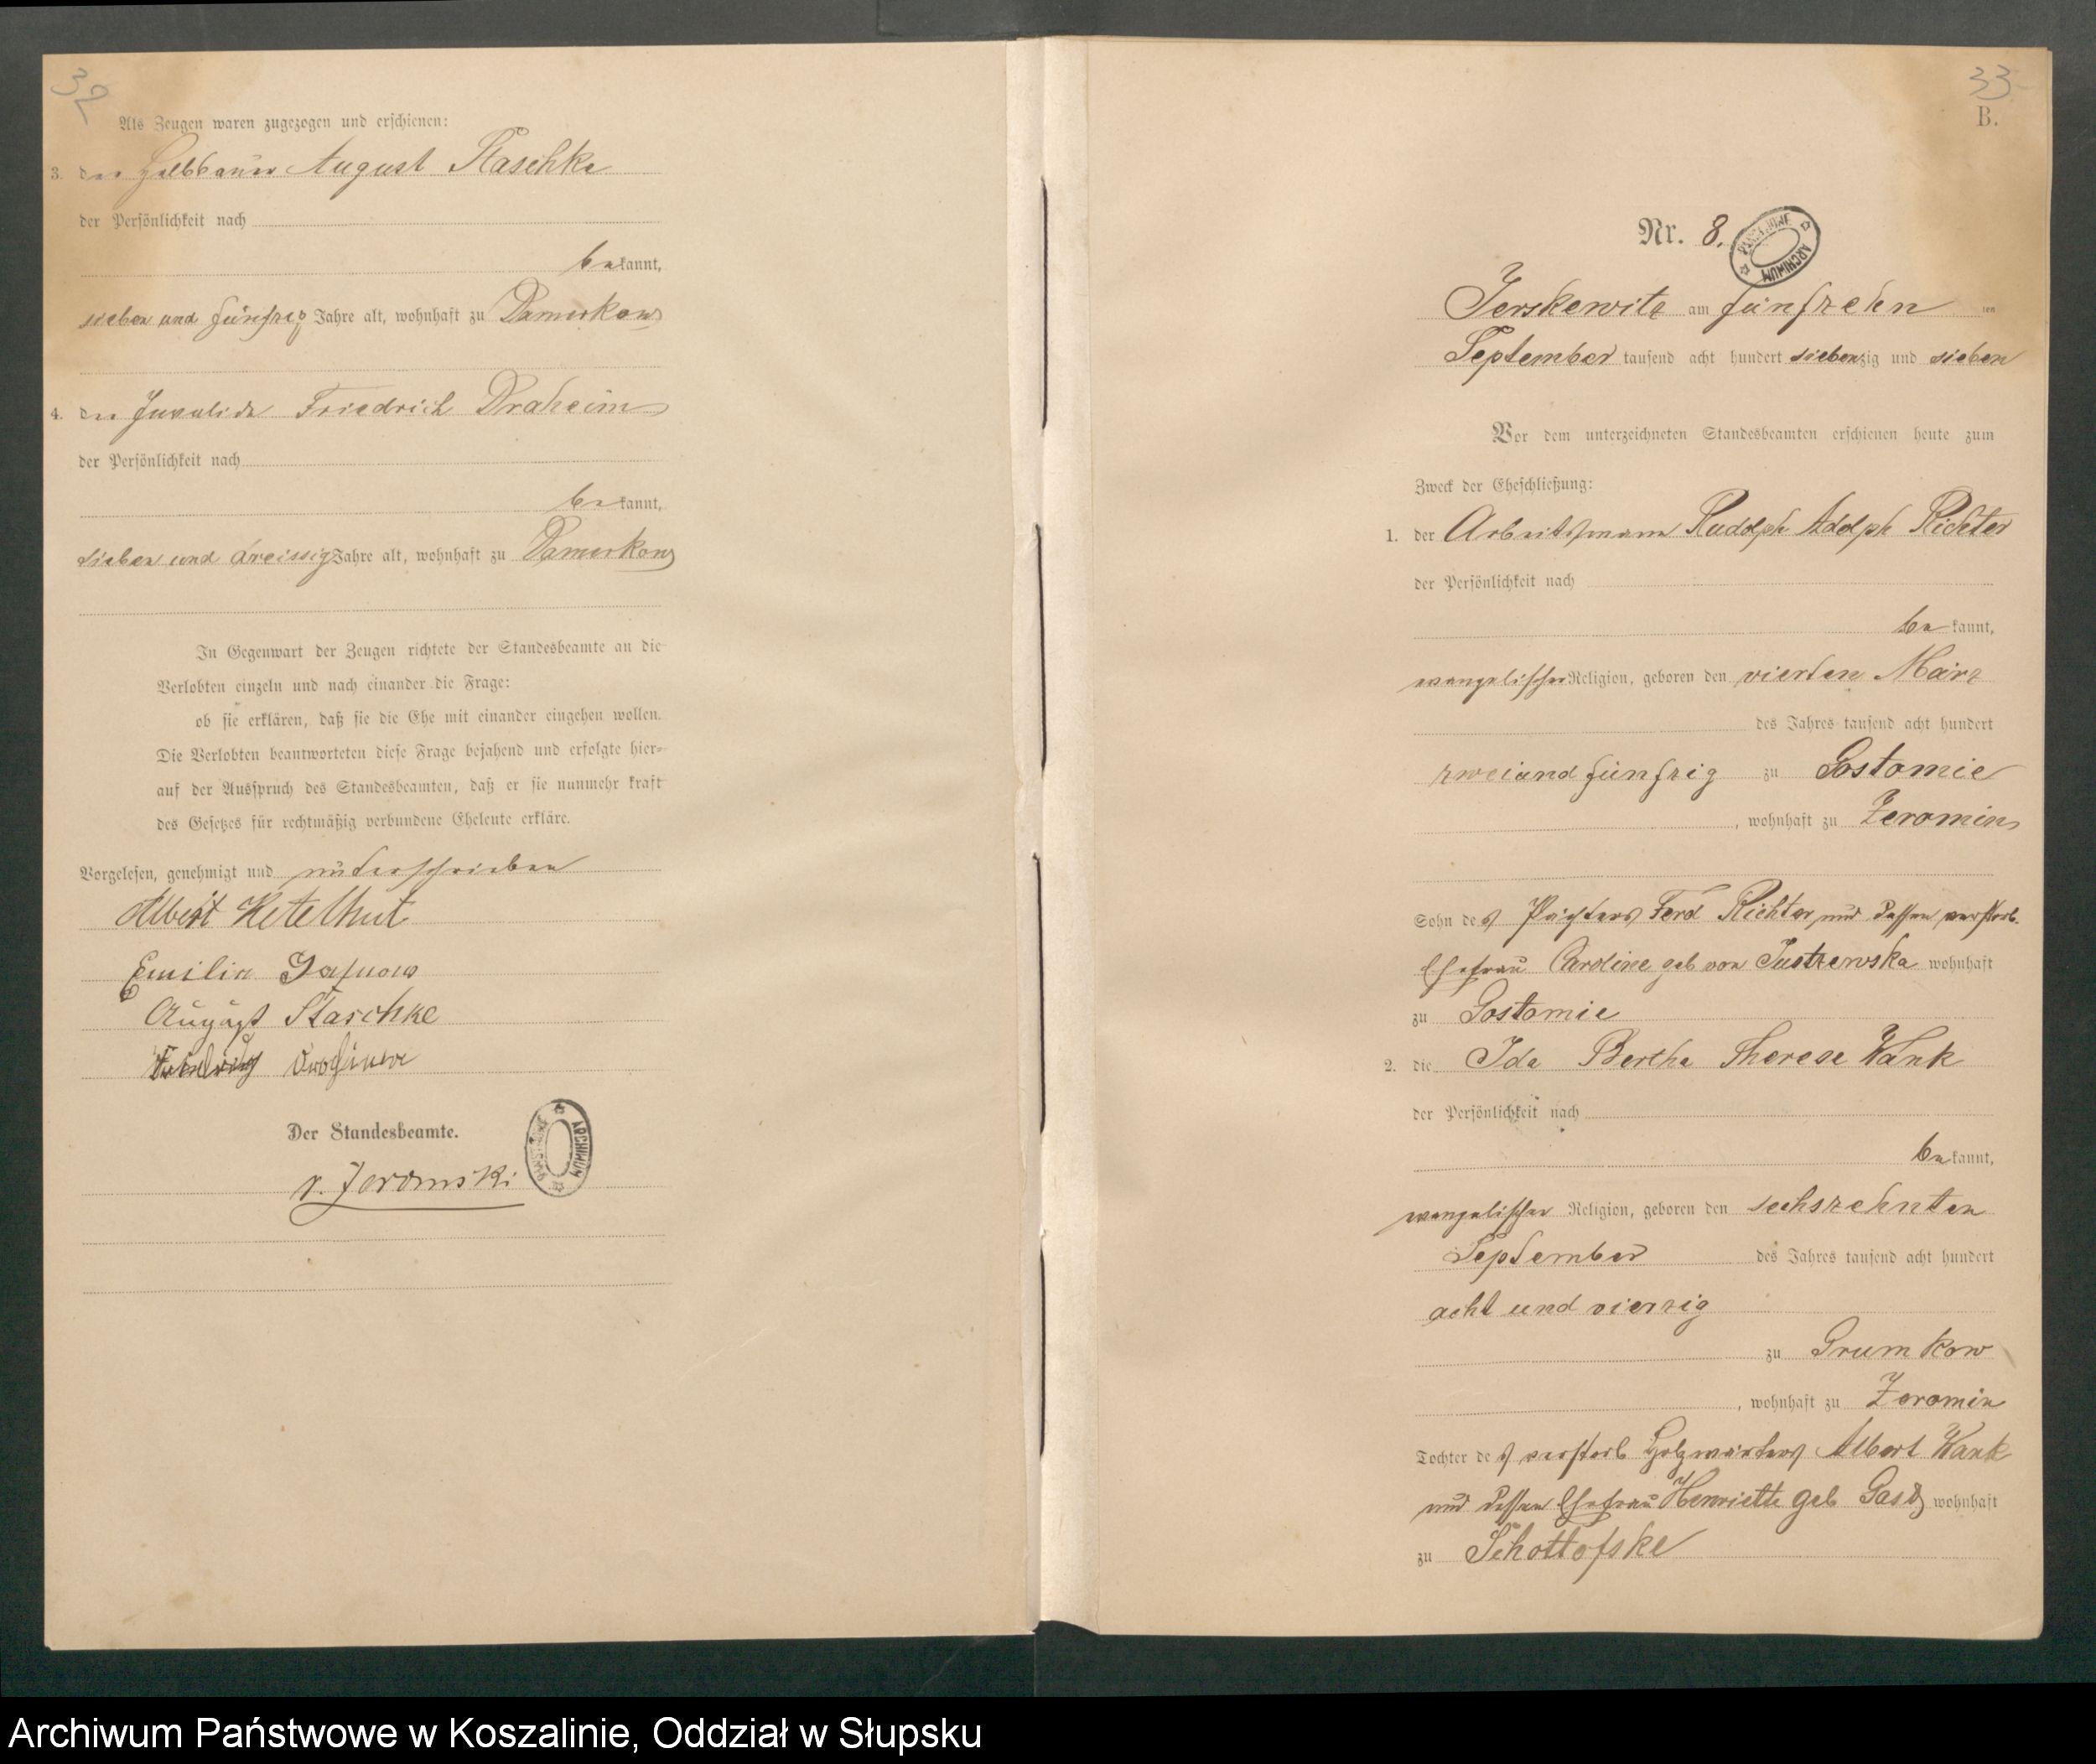 32
Als Zeugen waren zugezogen und erschienen:
3. der Halbbauer August Staschke
der Persönlichkeit nach
bekannt,
sieben und fünfzig Jahre alt, wohnhaft zu Damerkow
4. der Invalide Friedrich Draheim
der Persönlichkeit nach
bekannt,
sieben und dreissig Jahre alt, wohnhaft zu Damerkow
In Gegenwart der Zeugen richtete der Standesbeamte an die
Verlobten einzeln und nach einander die Frage:
ob sie erklären, daß sie die Ehe mit einander eingehen wollen.
Die Verlobten beantworteten diese Frage bejahend und erfolgte hier-
auf der Ausspruch des Standesbeamten, daß er sie nunmehr kraft
des Gesetzes für rechtmäßig verbundene Eheleute erkläre.
Vorgelesen, genehmigt und unterschrieben
Albert Ketelhut
Emilie
August Staschke
Der Standesbeamte.
PAŃSTWOWE ARCHIWUM
33
B.
Nr. 8.
PAŃSTWOWE ARCHIWUM
Jerskewitz am fünfzehn ten
September tausend acht hundert siebenzig und sieben
Vor dem unterzeichneten Standesbeamten erschienen heute zum
Zweck der Eheschließung:
1. der Arbeitsmann Rudolph Adolph Richter
der Persönlichkeit nach
bekannt,
evangelischer Religion, geboren den vierten März
des Jahres tausend acht hundert
zweiundfünfzig zu Gostomie
, wohnhaft zu Zeromin
Sohn des Pächters Ferd Richter und dessen verstorb.
Ehefrau Caroline geb von wohnhaft
zu Gostomie
2. die Ida Bertha Therese Wank
der Persönlichkeit nach
bekannt,
evangelischer Religion, geboren den sechszehnten
September des Jahres tausend acht hundert
acht und vierzig
zu Grumkow
, wohnhaft zu Zeromin
Tochter des verstorb Holzwärters Albert Wank
und dessen Ehefrau Henriette geb wohnhaft
zu Schottofske
Archiwum Państwowe w Koszalinie, Oddział w Słupsku